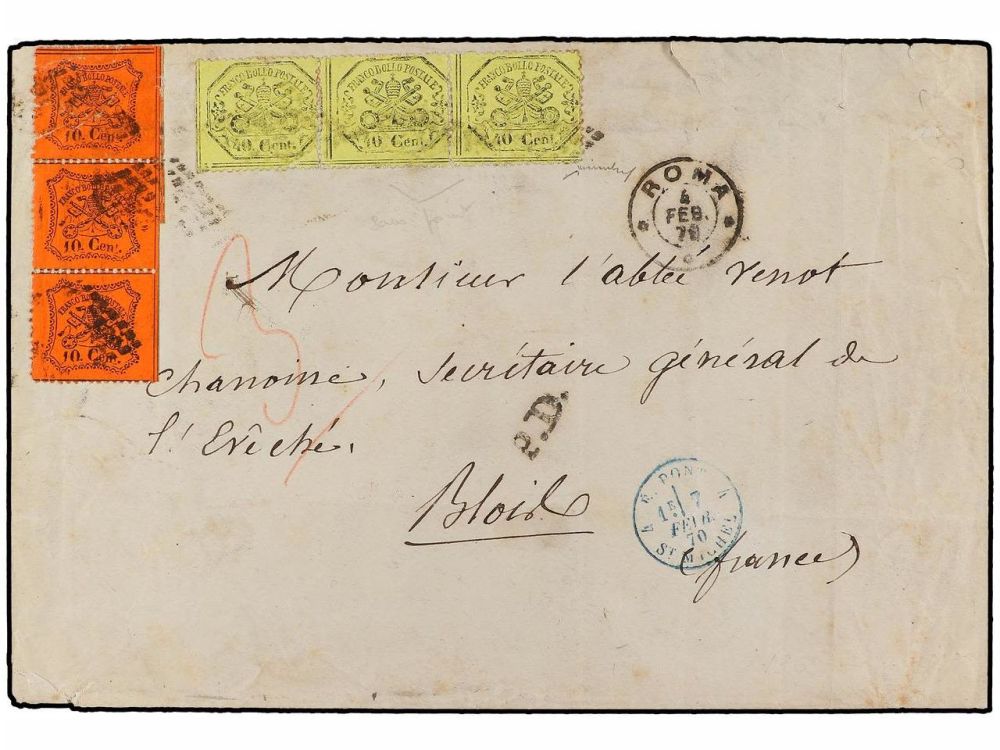 FRANCO BOLLO POSTALE
10. Cent.
FRANCO BOLLO POSTALE
10. Cent.
FRANCO BOLLO POSTALE
10. Cent.
FRANCO BOLLO POSTALE
40 Cent.
FRANCO BOLLO POSTALE
40 Cent.
FRANCO BOLLO POSTALE
40 Cent.
ROMA
4
FEB.
70
3
Monsieur l'abbé Venot
Chanoine, Secrétaire général de
l'Evêché.
P.D.
Blois
(france)
E. PONT
1E 7
FEVR.
70
ST MICHEL